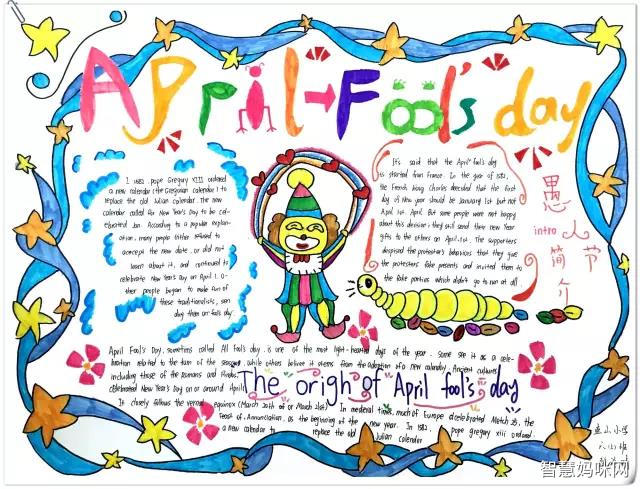 April Fool's day
In 1582, pope Gregory XIII ordered
a new calendar (the Gregorian calendar) to
replace the old Julian calendar. The new
calendar called for New Year's Day to be cel-
ebrated Jan. According to a popular explan-
ation, many people either refused to
accept the new date, or did not
learn about it, and continued to
celebrate New Year's Day on April 1. O-
ther people began to make fun of
these traditionalists, sen
day them on fools day.
It's said that the April fool's day
is started from France. In the year of 1582,
the French king Charles decided that the first
day of New year should be January 1st but not
April 1st. But some people were not happy
about this decision, they still send their New Year
gifts to the others on April 1st. The supporters
despised the protestors' behaviors that they give
the protestors fake presents and invited them to
the fake parties which didn't go to run at all.
愚
intro 人
简 节
介
April Fool's Day, sometimes called All Fools day, is one of the most light-hearted days of the year. Some see it as a cele-
bration related to the turn of the seasons, while others believe it stems from the adoption of a new calendar. Ancient cultures
including those of the Romans and Hindus,
celebrated New Year's Day on or around April 1.
The origin of April fool's day
It closely follows the vernal equinox (March 20th or March 21st). In medieval times, much of Europe celebrated March 25, the
Feast of Annunciation, as the beginning of the new year. In 1582, pope gregory xiii ordered
a new calendar to replace the old Julian calendar
盘山小学
智慧妈咪网